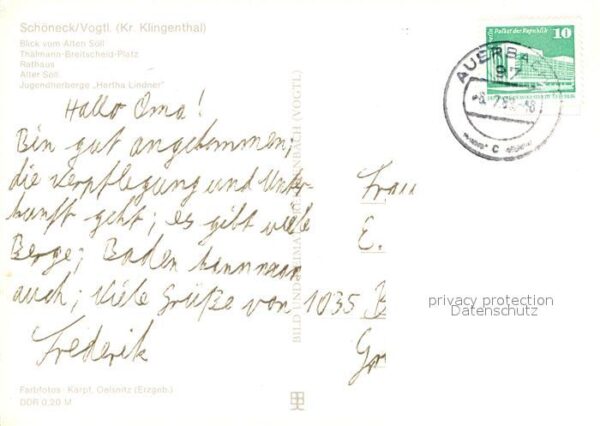 Schöneck/Vogtl. (Kr. Klingenthal)
Blick vom Alten Söll
Thälmann-Breitscheid-Platz
Rathaus
Alter Söll
Jugendherberge „Hertha Lindner"
Hallo Oma!
Bin gut angekommen;
die Verpflegung und Unter-
kunft geht; es gibt viele
Berge; Baden kann man
auch; Viele Grüße von
Frederik
Farbfotos: Karpf, Oelsnitz (Erzgeb.)
DDR 0,20 M
BILD UND HEIMAT REICHENBACH (VOGTL)
Palast der Republik
10
AUERBACH
97
c
Frau
E.
1035 B
Gr
privacy protection
Datenschutz